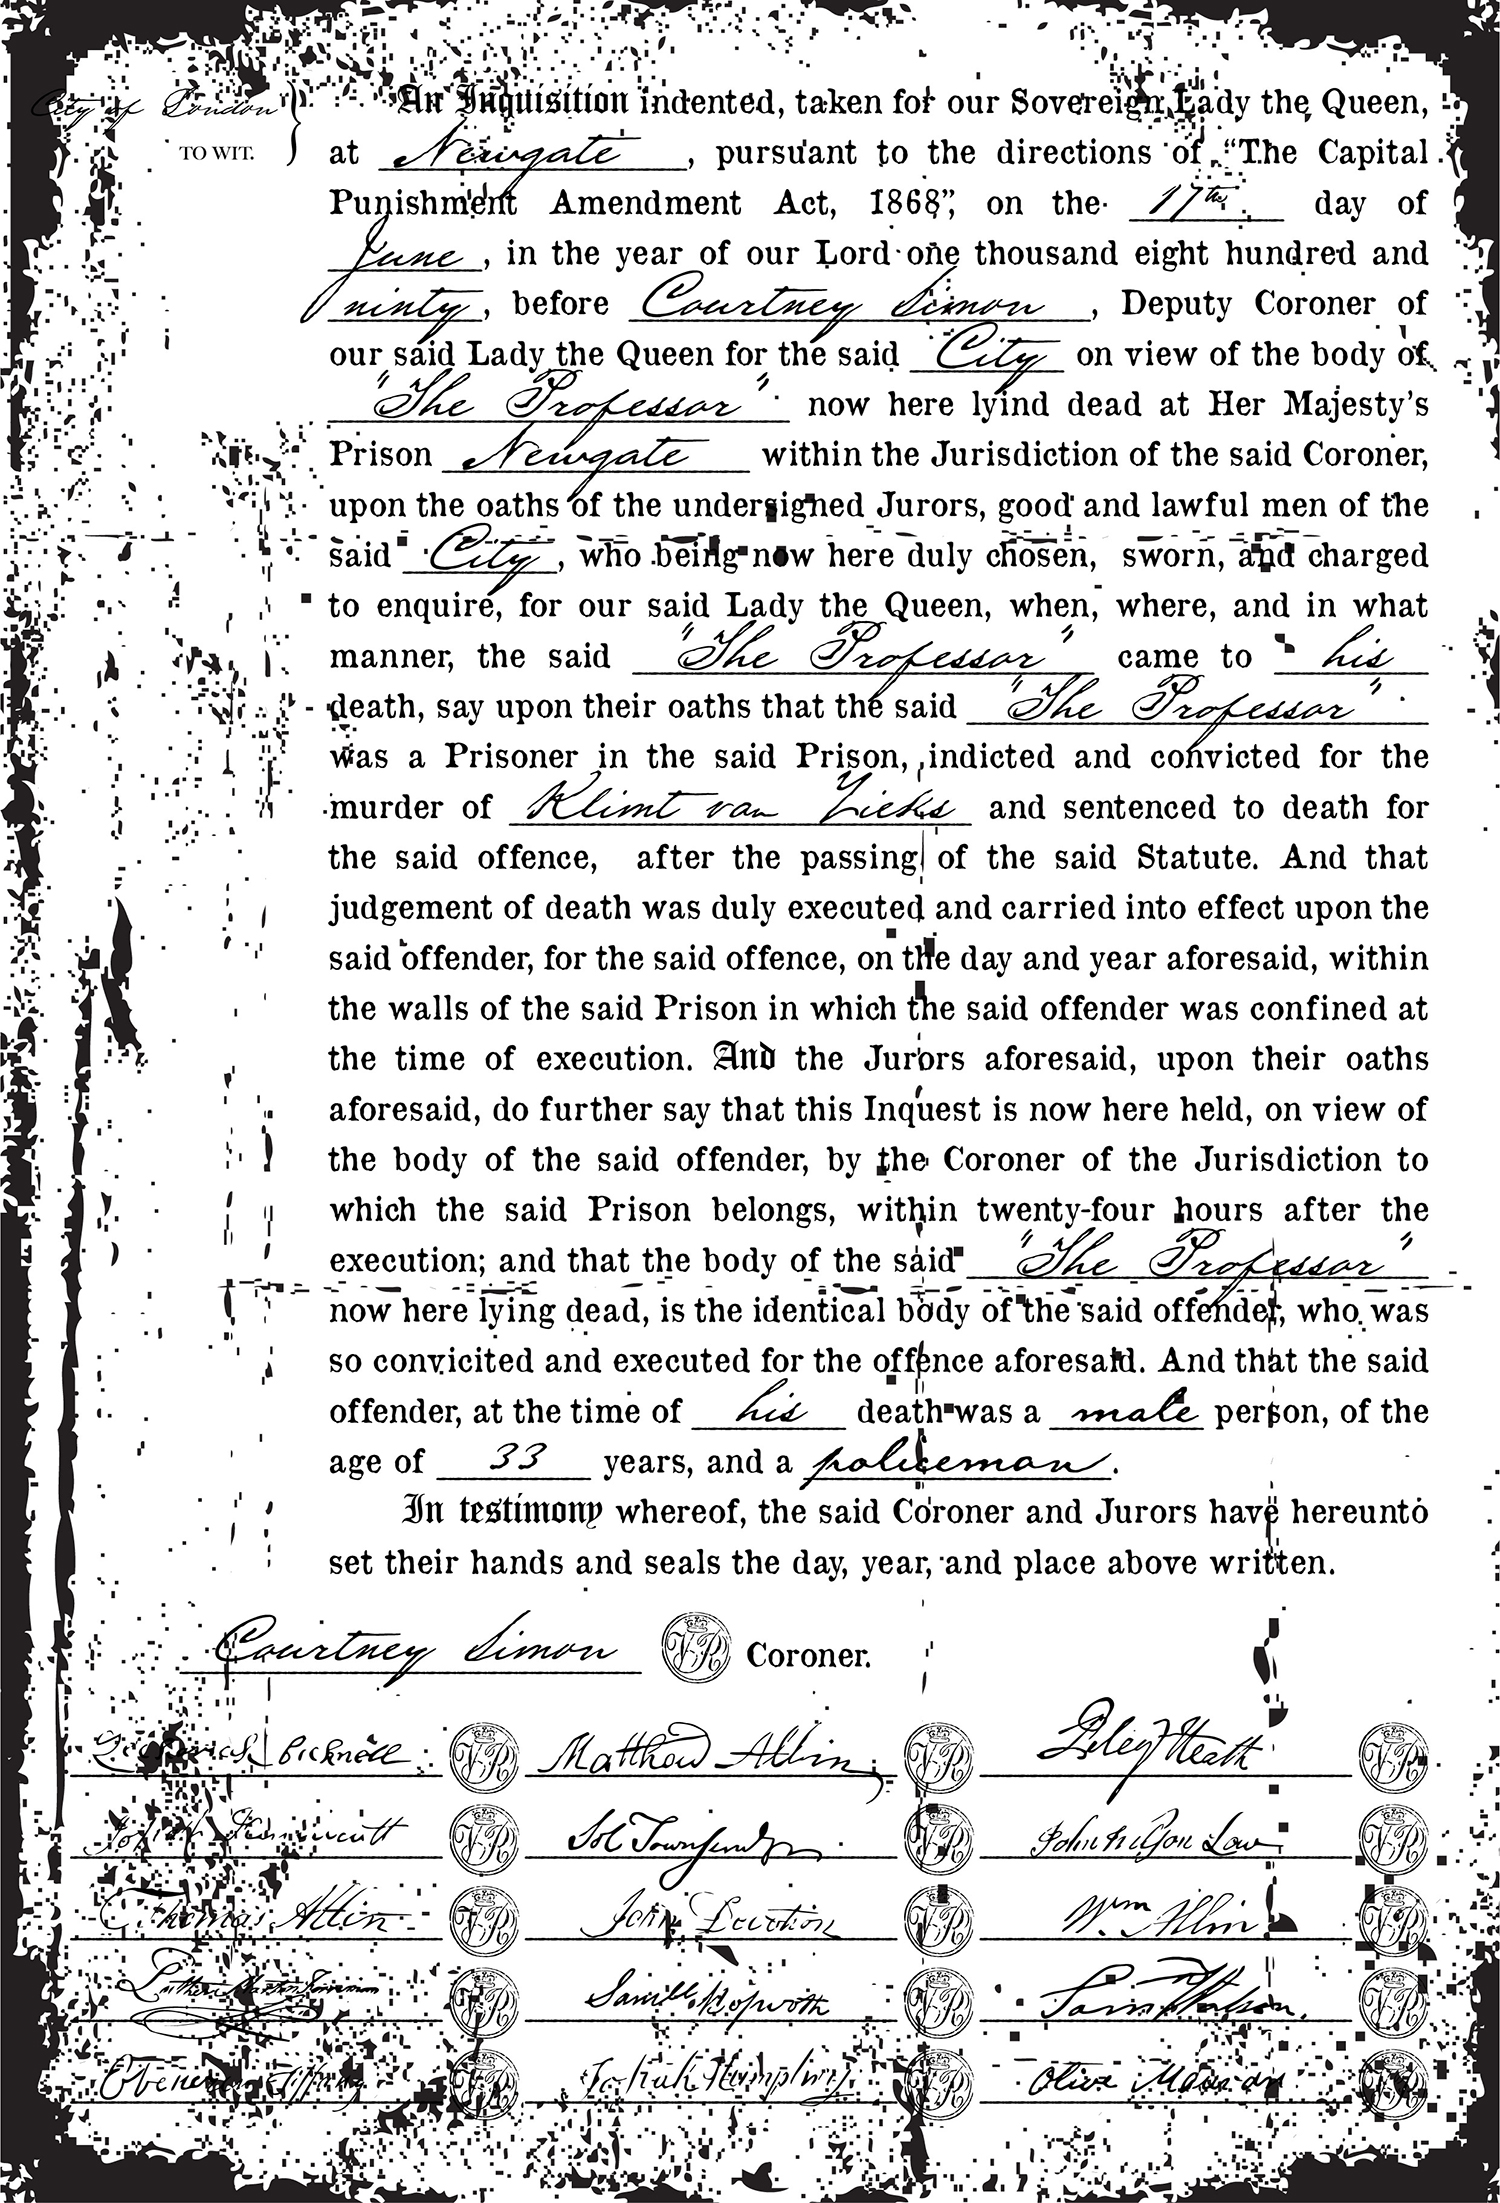 City of London
TO WIT.
An Inquisition indented, taken for our Sovereign Lady the Queen,
at Newgate, pursuant to the directions of "The Capital
Punishment Amendment Act, 1868", on the 17th day of
June, in the year of our Lord one thousand eight hundred and
ninty, before Courtney Simon, Deputy Coroner of
our said Lady the Queen for the said City on view of the body of
"The Professor" now here lyind dead at Her Majesty's
Prison Newgate within the Jurisdiction of the said Coroner,
upon the oaths of the undersigned Jurors, good and lawful men of the
said City, who being now here duly chosen, sworn, and charged
to enquire, for our said Lady the Queen, when, where, and in what
manner, the said "The Professor" came to his
death, say upon their oaths that the said "The Professor"
was a Prisoner in the said Prison, indicted and convicted for the
murder of Klimt van Zieks and sentenced to death for
the said offence, after the passing of the said Statute. And that
judgement of death was duly executed and carried into effect upon the
said offender, for the said offence, on the day and year aforesaid, within
the walls of the said Prison in which the said offender was confined at
the time of execution. And the Jurors aforesaid, upon their oaths
aforesaid, do further say that this Inquest is now here held, on view of
the body of the said offender, by the Coroner of the Jurisdiction to
which the said Prison belongs, within twenty-four hours after the
execution; and that the body of the said "The Professor"
now here lying dead, is the identical body of the said offender, who was
so convicited and executed for the offence aforesaid. And that the said
offender, at the time of his death was a male person, of the
age of 33 years, and a policeman.
In testimony whereof, the said Coroner and Jurors have hereunto
set their hands and seals the day, year, and place above written.
Courtney Simon VR Coroner.
Bicknell VR Matthew Allin VR Heath VR
VR Sol Townsend VR John Law VR
Thomas Allin VR John Devotion VR Wm Allin VR
Luther Martin VR Samll VR VR
Ebenezer Tiffany VR Josiah Humphrey VR VR